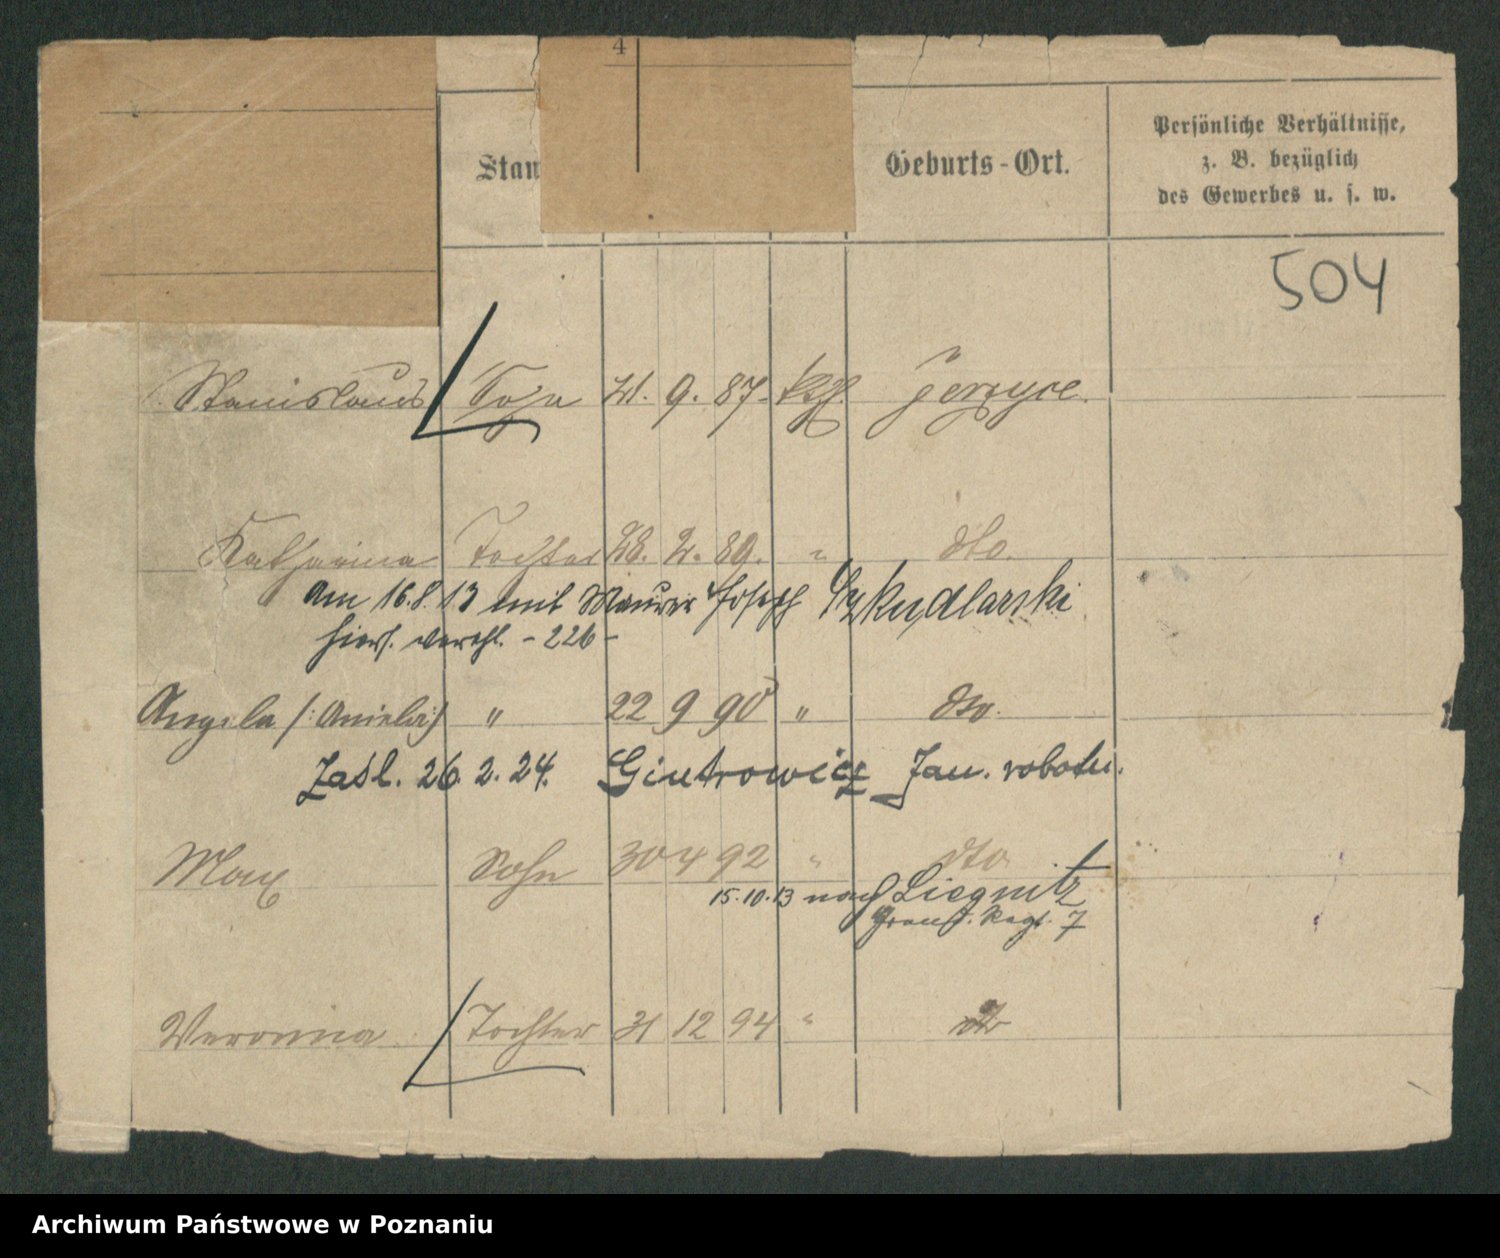 4
Stan
Geburts-Ort.
Persönliche Verhältnisse,
z. B. bezüglich
des Gewerbes u. s. w.
504
Stanislaus Sohn 21. 9. 87. kath. Jerzyce.
Katharina Tochter 28. 2. 89. " dto.
Am 16.8.13 mit Maurer Joseph Szkudlarski
hiers. verehl. - 226 -
Angela /: Aniela :/ " 22 9 90 " dto.
Zaśl. 26. 2. 24. Gintrowicz Jan. robotn.
Max Sohn 30 4 92 " dto
15.10.13 nach Liegnitz
Grend. Regt. 7
Veronina Tochter 31 12 94 " dto
Archiwum Państwowe w Poznaniu